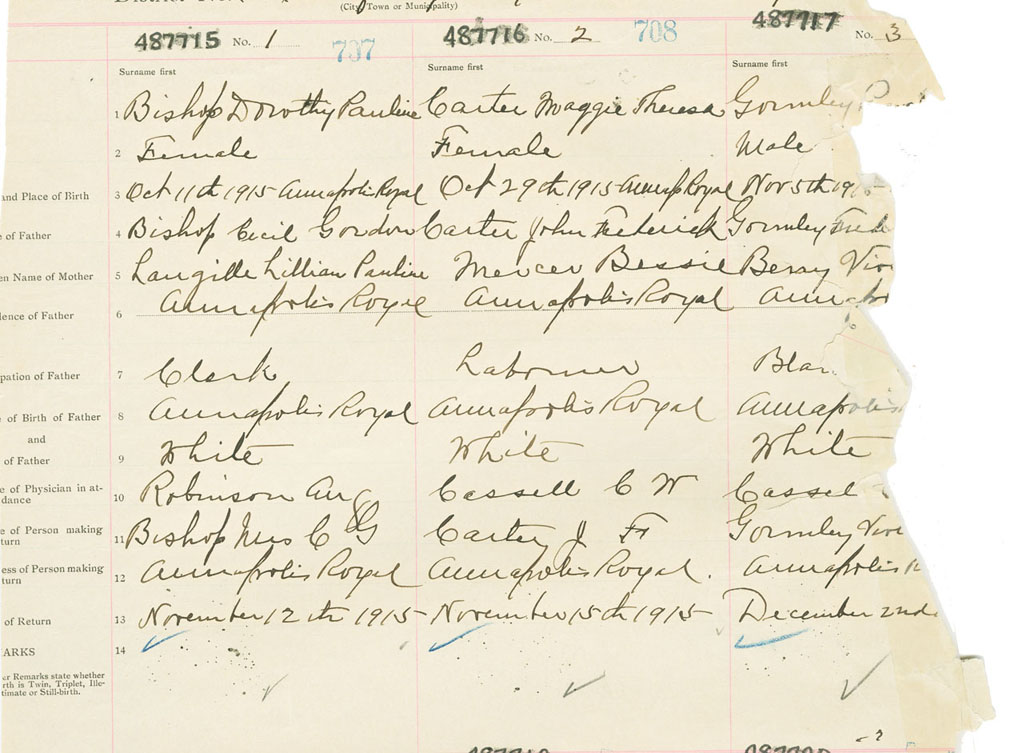 (City, Town or Municipality)
487715 No. 1 707 487716 No. 2 708 487717 No. 3
Surname first Surname first Surname first
1 Bishop Dorothy Pauline Carter Maggie Theresa Gormley
2 Female Female Male
and Place of Birth 3 Oct 11th 1915 Annapolis Royal Oct 29th 1915 Annap Royal Nov 5th 19
e of Father 4 Bishop Cecil Gordon Carter John Frederick Gormley Fred
en Name of Mother 5 Langille Lillian Pauline Mercer Bessie Vio
dence of Father 6 Annapolis Royal Annapolis Royal Annapo
pation of Father 7 Clerk Labourer Bla
e of Birth of Father 8 Annapolis Royal Annapolis Royal Annapolis
and
of Father 9 White White White
e of Physician in at-
dance 10 Robinson Cassell C W Cassel
e of Person making
turn 11 Bishop Mrs C G Carter J F Gormley Vio
ess of Person making
turn 12 Annapolis Royal Annapolis Royal. Annapolis R
of Return 13 November 12th 1915 November 15th 1915 December 2nd
ARKS 14
er Remarks state whether
rth is Twin, Triplet, Ille-
timate or Still-birth.